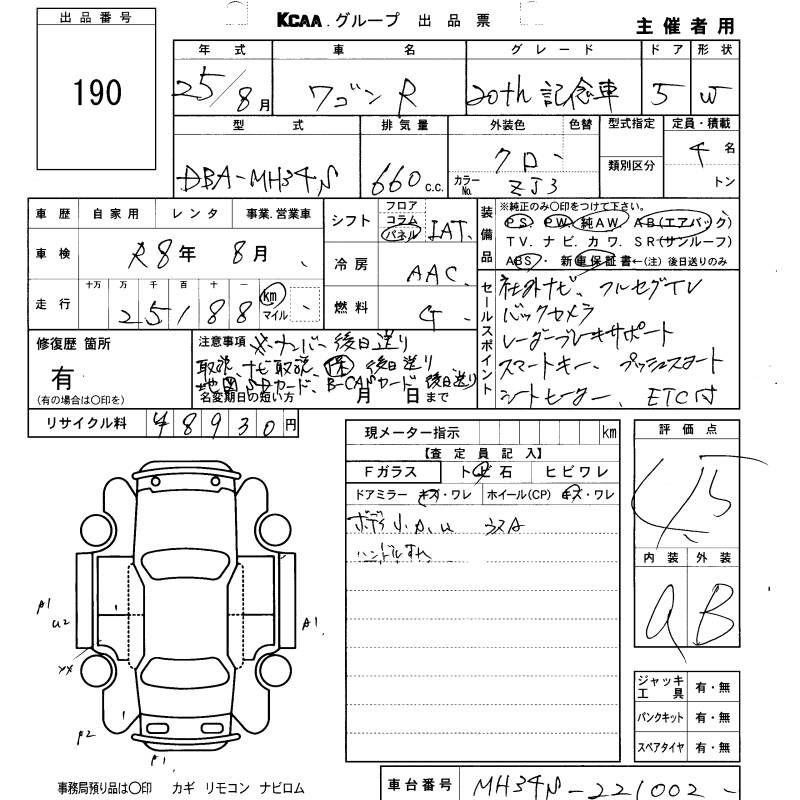 出品番号
190
KCAA.グループ 出品票
主催者用
年式 車名 グレード ドア 形状
25/8月 ワゴンR 20th 記念車 5 W
型式 排気量 外装色 色替 型式指定 定員・積載
DBA-MH34S 660 c.c. クロ 4名
カラーNo ZJ3 類別区分 トン
車歴 自家用 レンタ 事業.営業車
車検 R8年 8月
走行 十万 万 千 百 十 一
25188 km マイル
シフト フロア コラム パネル IAT
冷房 AAC
燃料 G
装備品
※純正のみ○印をつけて下さい。
PS. PW. 純AW. AB(エアバック)
TV. ナビ. カワ. SR(サンルーフ)
ABS・ 新車保証書←(注) 後日送りのみ
セールスポイント
社外ナビ、フルセグTV
バックカメラ
レーダーブレーキサポート
スマートキー、プッシュスタート
シートヒーター、ETC付
修復歴 箇所
有
(有の場合は○印を)
注意事項 ※ナンバー後日送り
取説、ナビ取説、保 後日送り
地図SDカード、B-CASカード 後日送り
名変期日の短い方 月 日まで
リサイクル料 ¥8930円
現メーター指示 km
【査定員記入】
Fガラス トビ石 ヒビワレ
ドアミラー キズ・ワレ ホイール(CP) キズ・ワレ
ボディ小A.U
ハンドルすれ
評価点
4.5
内装 外装
B
A1
U2
XX
A1.
P2
P1
ジャッキ工具 有・無
パンクキット 有・無
スペアタイヤ 有・無
事務局預り品は○印 カギ リモコン ナビロム
車台番号 MH34S-221002